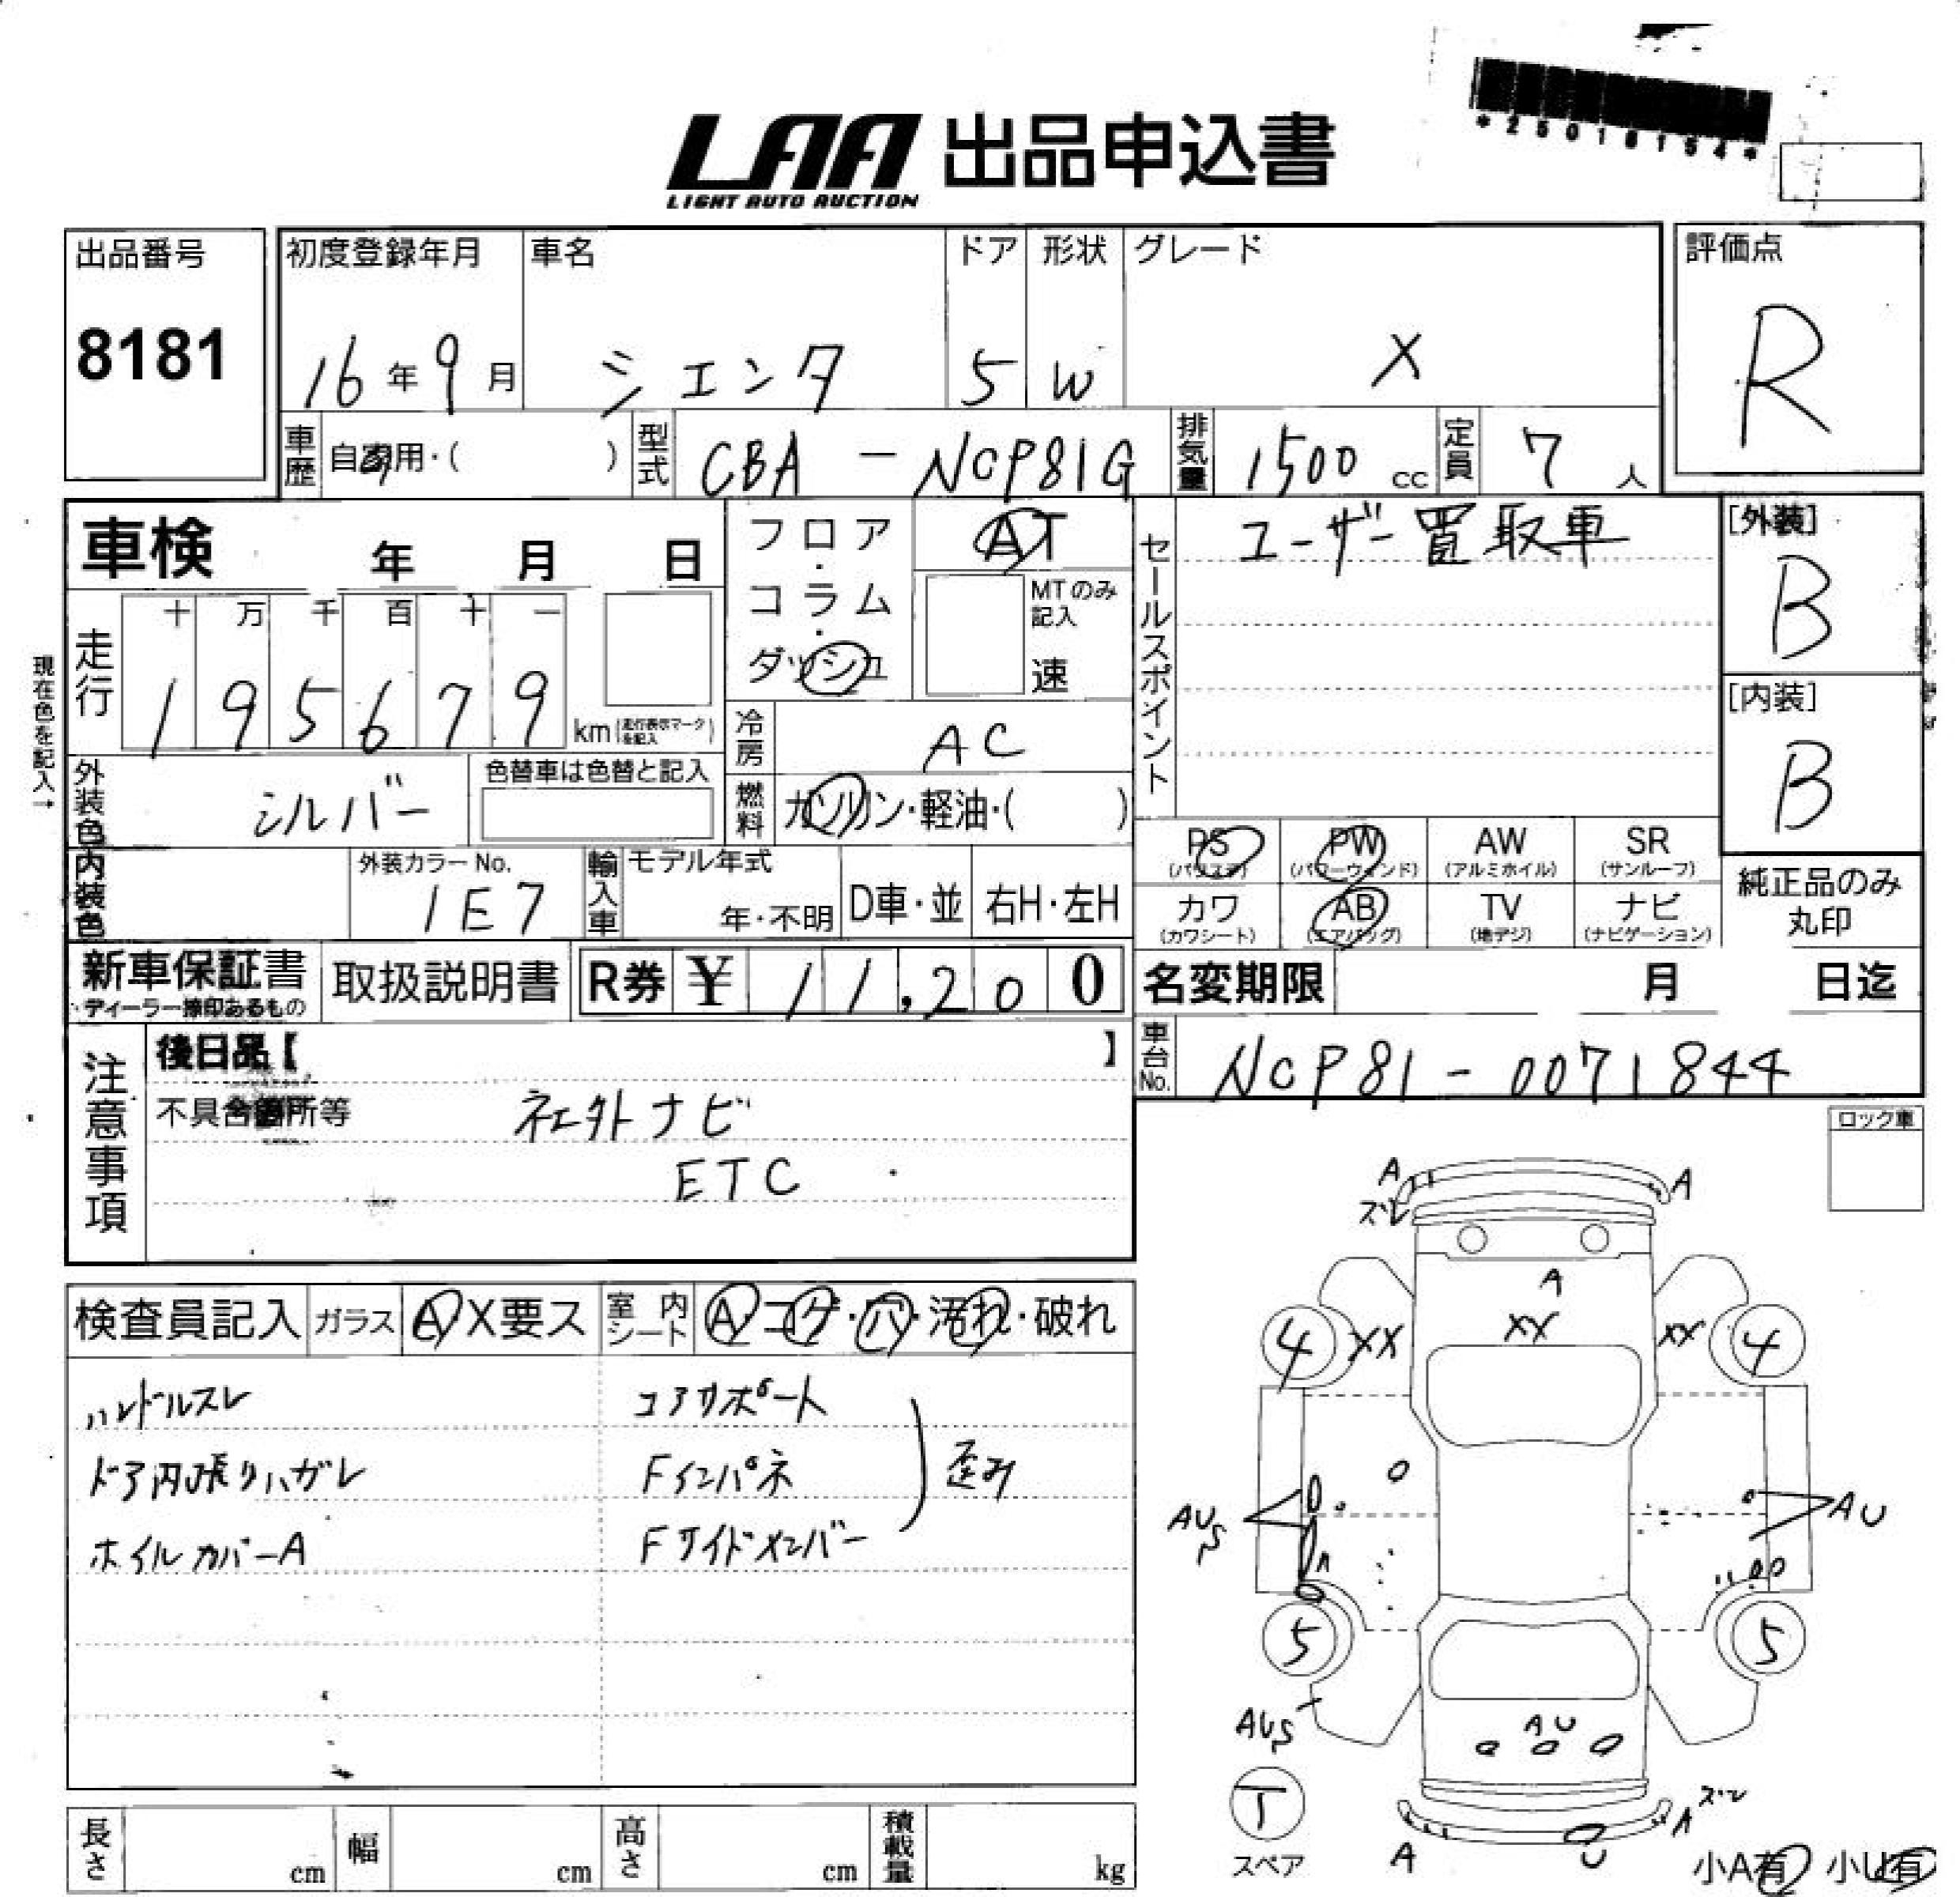 *25018154*
LAA 出品申込書
LIGHT AUTO AUCTION
出品番号 8181
初度登録年月 16年9月
車名 シエンタ
ドア 5
形状 W
グレード X
評価点 R
車歴 自家用・( )
型式 CBA-NCP81G
排気量 1500 cc
定員 7 人
車検 年 月 日
フロア・コラム・ダッシュ
AT
MTのみ記入 速
セールスポイント ユーザー買取車
[外装] B
[内装] B
現在色を記入→
走行 十 万 千 百 十 一
195679 km (走行表示マークを記入)
冷房 AC
外装色 シルバー
色替車は色替と記入
燃料 ガソリン・軽油・( )
PS (パワステ) PW (パワーウィンド) AW (アルミホイル) SR (サンルーフ)
カワ (カワシート) AB (エアバッグ) TV (地デジ) ナビ (ナビゲーション)
純正品のみ丸印
内装色
外装カラーNo. 1E7
輸入車 モデル年式 年・不明 D車・並 右H・左H
新車保証書 ・ディーラー捺印あるもの
取扱説明書
R券 ¥ 11,200
名変期限 月 日迄
車台No. NCP81-0071844
注意事項
後日品【 】
不具合箇所等 社外ナビ
ETC
ロック車
検査員記入 ガラス A X要ス 室内シート A コゲ・穴・汚れ・破れ
ハンドルスレ コアサポート
ドア内張りハガレ Fインパネ 歪み
ホイルカバーA Fサイドメンバー
A A
ズレ
A
4 XX XX XX 4
AU AU
5 5
AU
AU
T
スペア
ズレ
A A U
小A有 小U有
長さ cm 幅 cm 高さ cm 積載量 kg